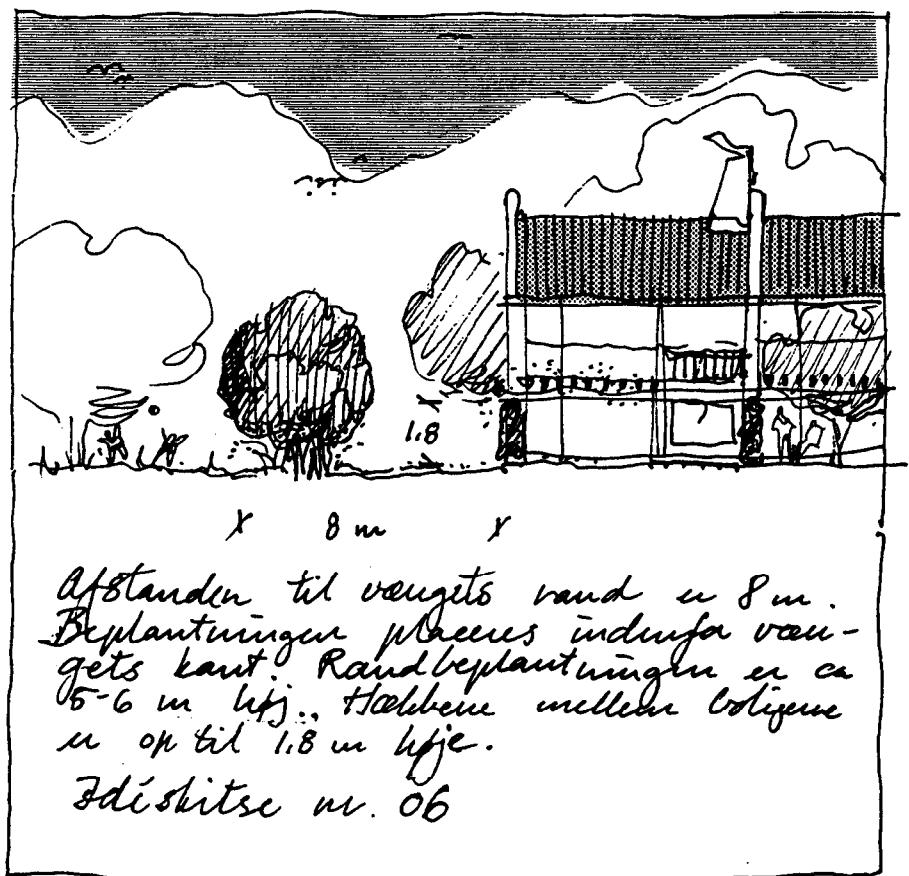 1.8
x 8 m x
Afstanden til vængets rand er 8 m.
Beplantningen placeres indenfor væn-
gets kant. Randbeplantningen er ca
5-6 m høj.. Hækkene mellem boligerne
er op til 1.8 m høje.
Idéskitse nr. 06